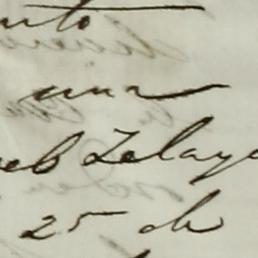 nto
una
eb Zelaya
25 de